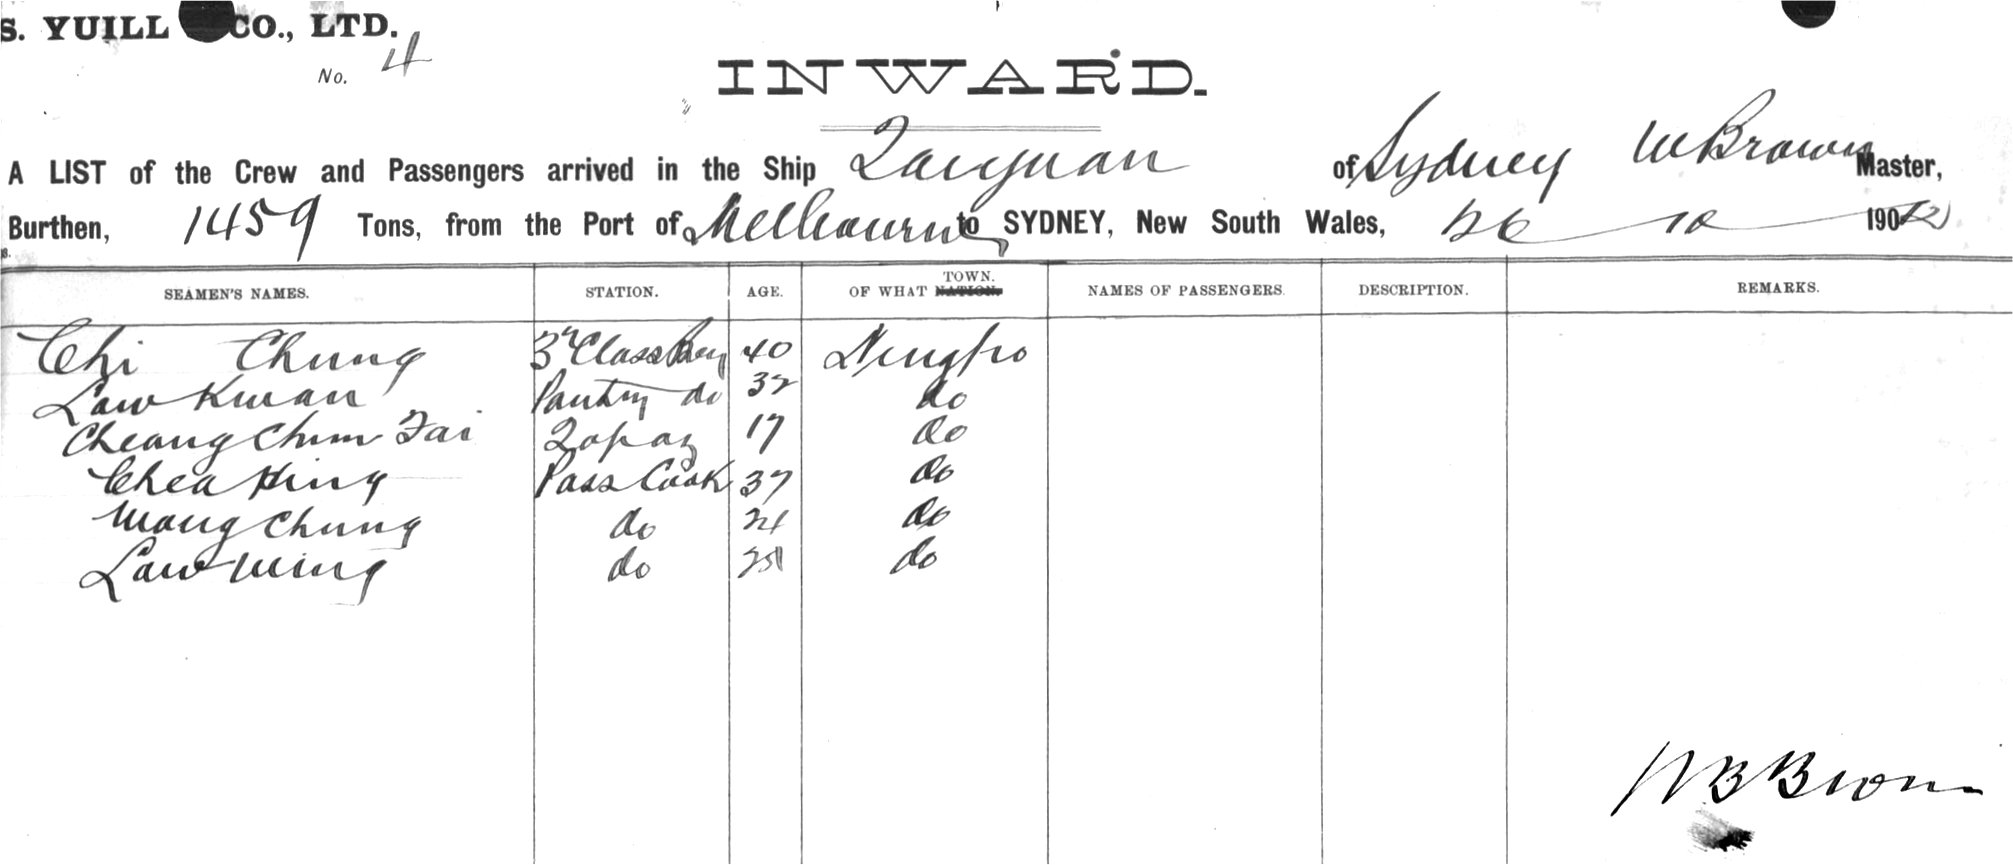 S. YUILL CO., LTD.
No. 4
INWARD.
A LIST of the Crew and Passengers arrived in the Ship Taiyuan of Sydney W Brown Master,
Burthen, 1459 Tons, from the Port of Melbourne to SYDNEY, New South Wales, 26 10 190
SEAMEN'S NAMES. STATION. AGE. OF WHAT NATION. TOWN. NAMES OF PASSENGERS. DESCRIPTION. REMARKS.
Chi Chung 3rd Class Boy 40 Ningpo
Law Kwan Pantry do 32 do
Cheang Chun Tai Topaz 17 do
Chea Hing Pass Cook 37 do
Wong Chung do 24 do
Law Ming do do
W B Brown